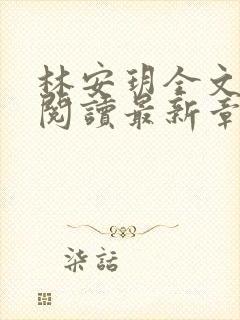 林安玥全文
閱讀最新章
柒話